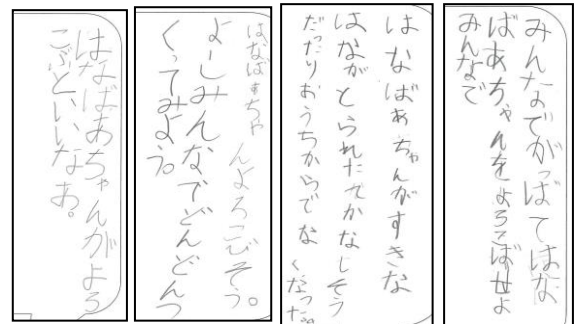 はなばあちゃんがよろ
こぶといいなあ。
はなばあちゃ んよろこびそう。
よーしみんなでどんどんつ
くってみよう。
はなばあちゃんがすきな
はながとられたでかなしそう
だったりおうちからでな くなった。
みんなでがっばてはな
ばあちゃんをよろこばせよ
みんなで